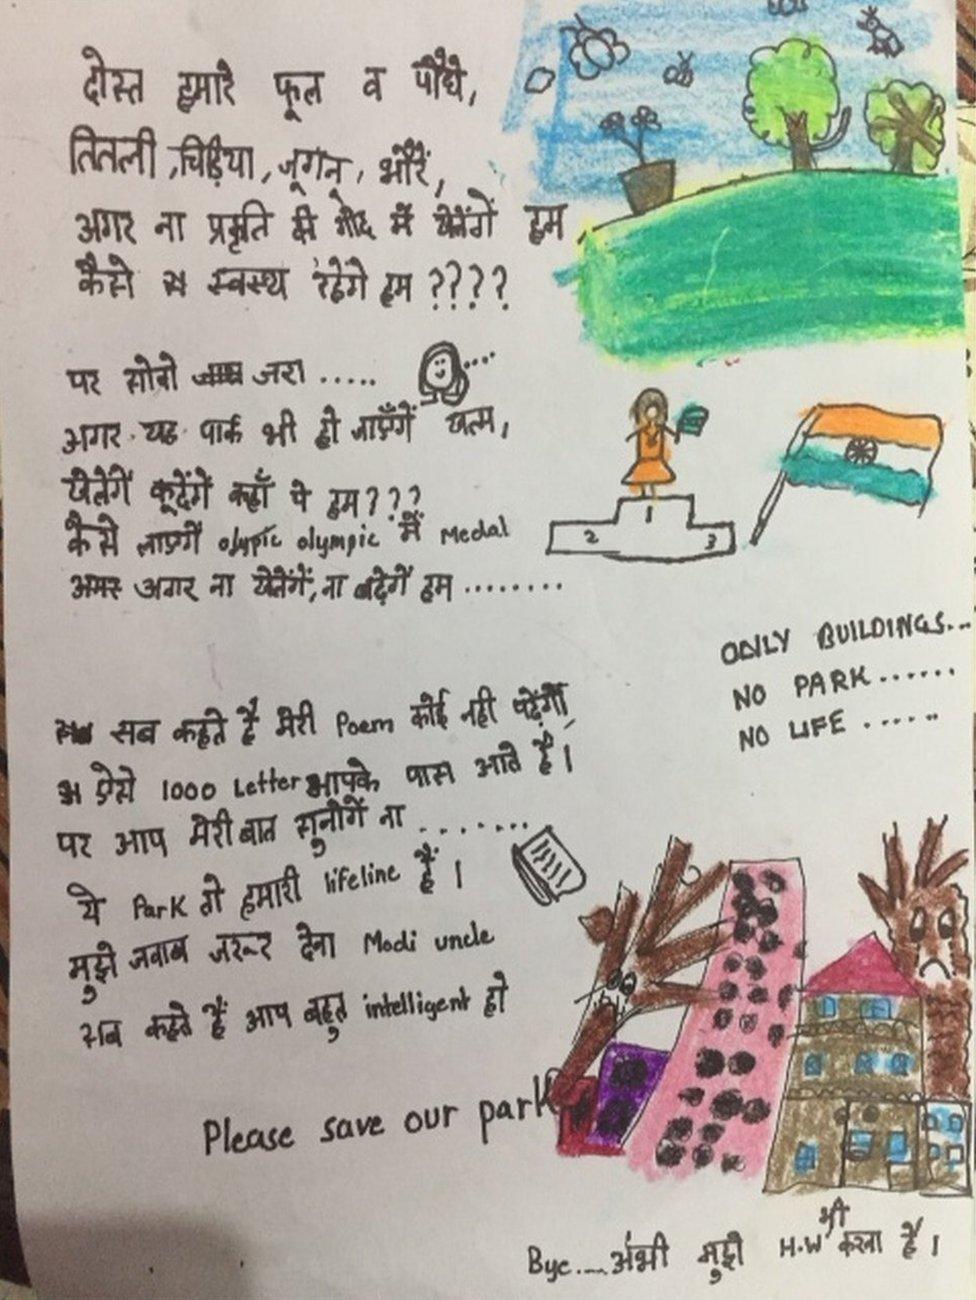 दोस्त हमारे फूल व पौधे,
तितली, चिड़िया, जूगन, भौरें,
अगर ना प्रकृति की गोद में खेलेंगें हम,
कैसे स्वस्थ रहेगे हम ????
पर सोचो जरा .....
अगर यह पार्क भी हो जाएँगें खत्म,
खेलेगें कूदेंगें कहाँ पे हम???
कैसे लाएगें olypic olympic में Medal
अगर ना खेलेंगें, ना बढ़ेगें हम ........
ONLY BUILDINGS...
NO PARK ......
NO LIFE ......
सब कहते है मेरी Poem कोई नही पढ़ेगा,
ऐसे 1000 Letter आपके पास आते है।
पर आप मेरी बात सुनोगें ना .......
ये Park तो हमारी lifeline हैं।
मुझे जवाब जरूर देना Modi uncle
सब कहते हैं आप बहुत intelligent हो
Please save our park
Bye....अभी मुझे H.W भी करना है।
2 1 3